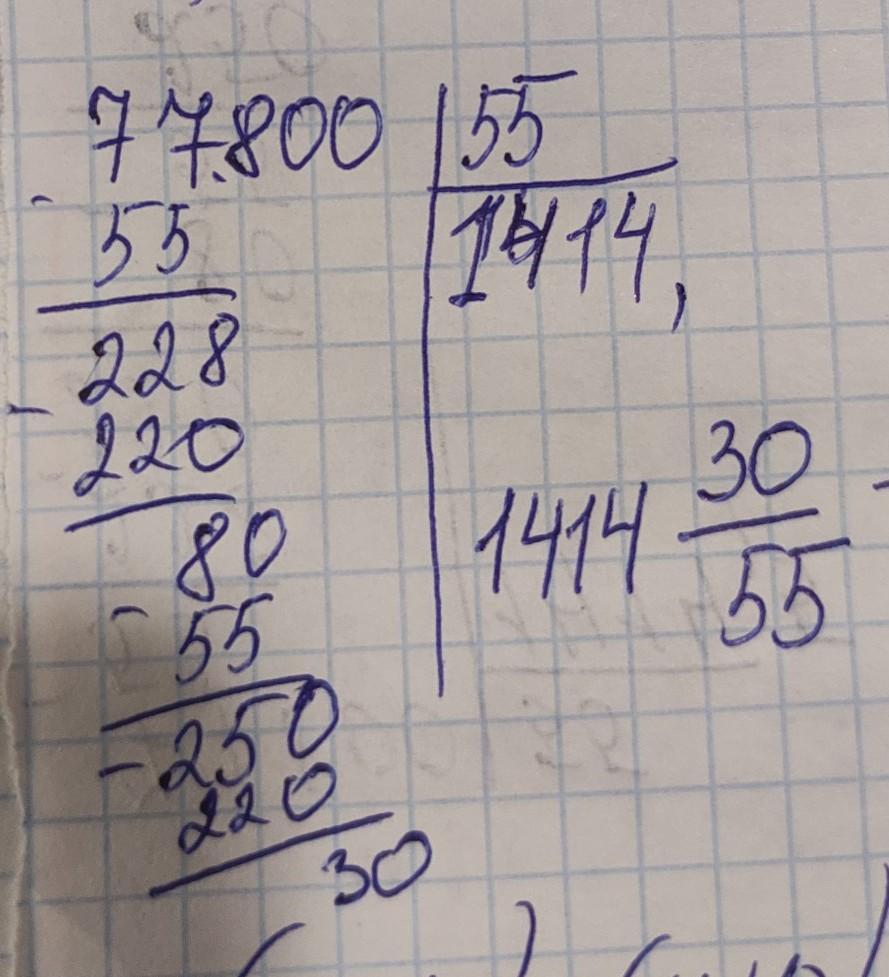 77.800 55
- 55 1414,
228
- 220
80 1414 30/55 -
- 55
- 250
220
30